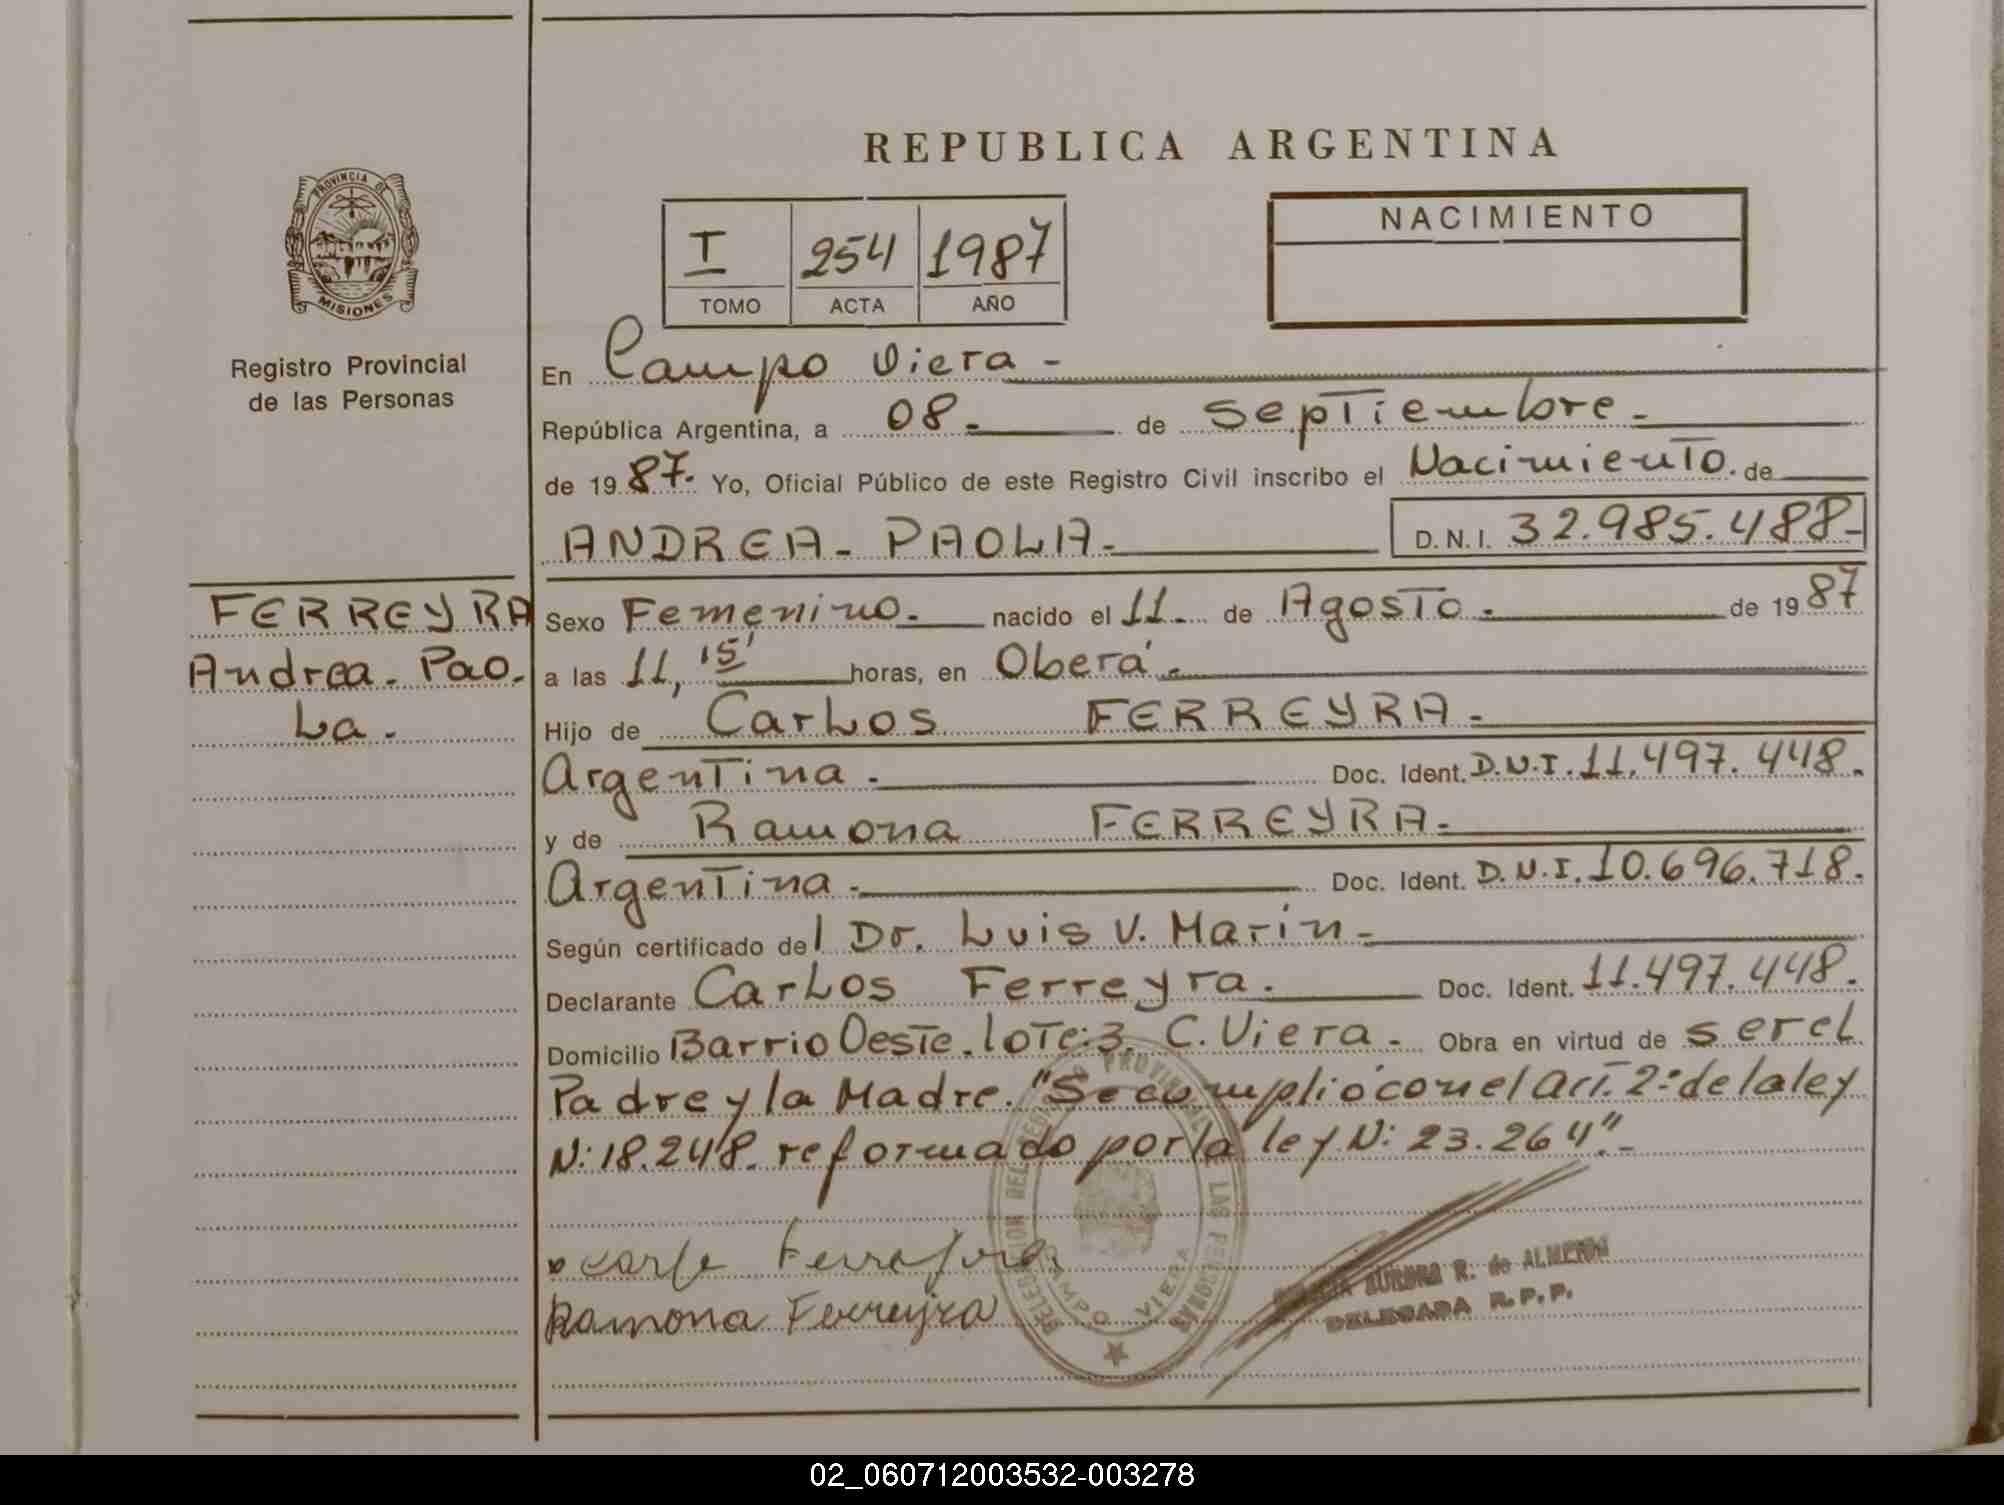 REPUBLICA ARGENTINA
PROVINCIA DE
MISIONES
Registro Provincial
de las Personas
I 254 1987
TOMO ACTA AÑO
NACIMIENTO
En Campo Viera -
República Argentina, a 08. de Septiembre.
de 1987. Yo, Oficial Público de este Registro Civil inscribo el Nacimiento. de
ANDREA - PAOLA. D. N. I. 32.985.488-
FERREYRA
Andrea. Pao.
La.
Sexo Femenino. nacido el 11. de Agosto. de 1987
a las 11, 15' horas, en Oberá.
Hijo de Carlos FERREYRA.
Argentina. Doc. Ident. D.N.I. 11.497.448.
y de Ramona FERREYRA.
Argentina. Doc. Ident. D.N.I. 10.696.718.
Según certificado del Dr. Luis V. Marin.
Declarante Carlos Ferreyra. Doc. Ident. 11.497.448.
Domicilio Barrio Oeste. lote: 3. C. Viera. Obra en virtud de ser el
Padre y la Madre. "Se cumplió con el art. 2º de la ley
N: 18.248. reformado por la ley N: 23.264".-
Ramona Ferreyra
DELEGACION DEL REGISTRO PROVINCIAL DE LAS PERSONAS
CAMPO VIERA
AURORA R. de ALMEIDA
DELEGADA R.P.P.
02_060712003532-003278